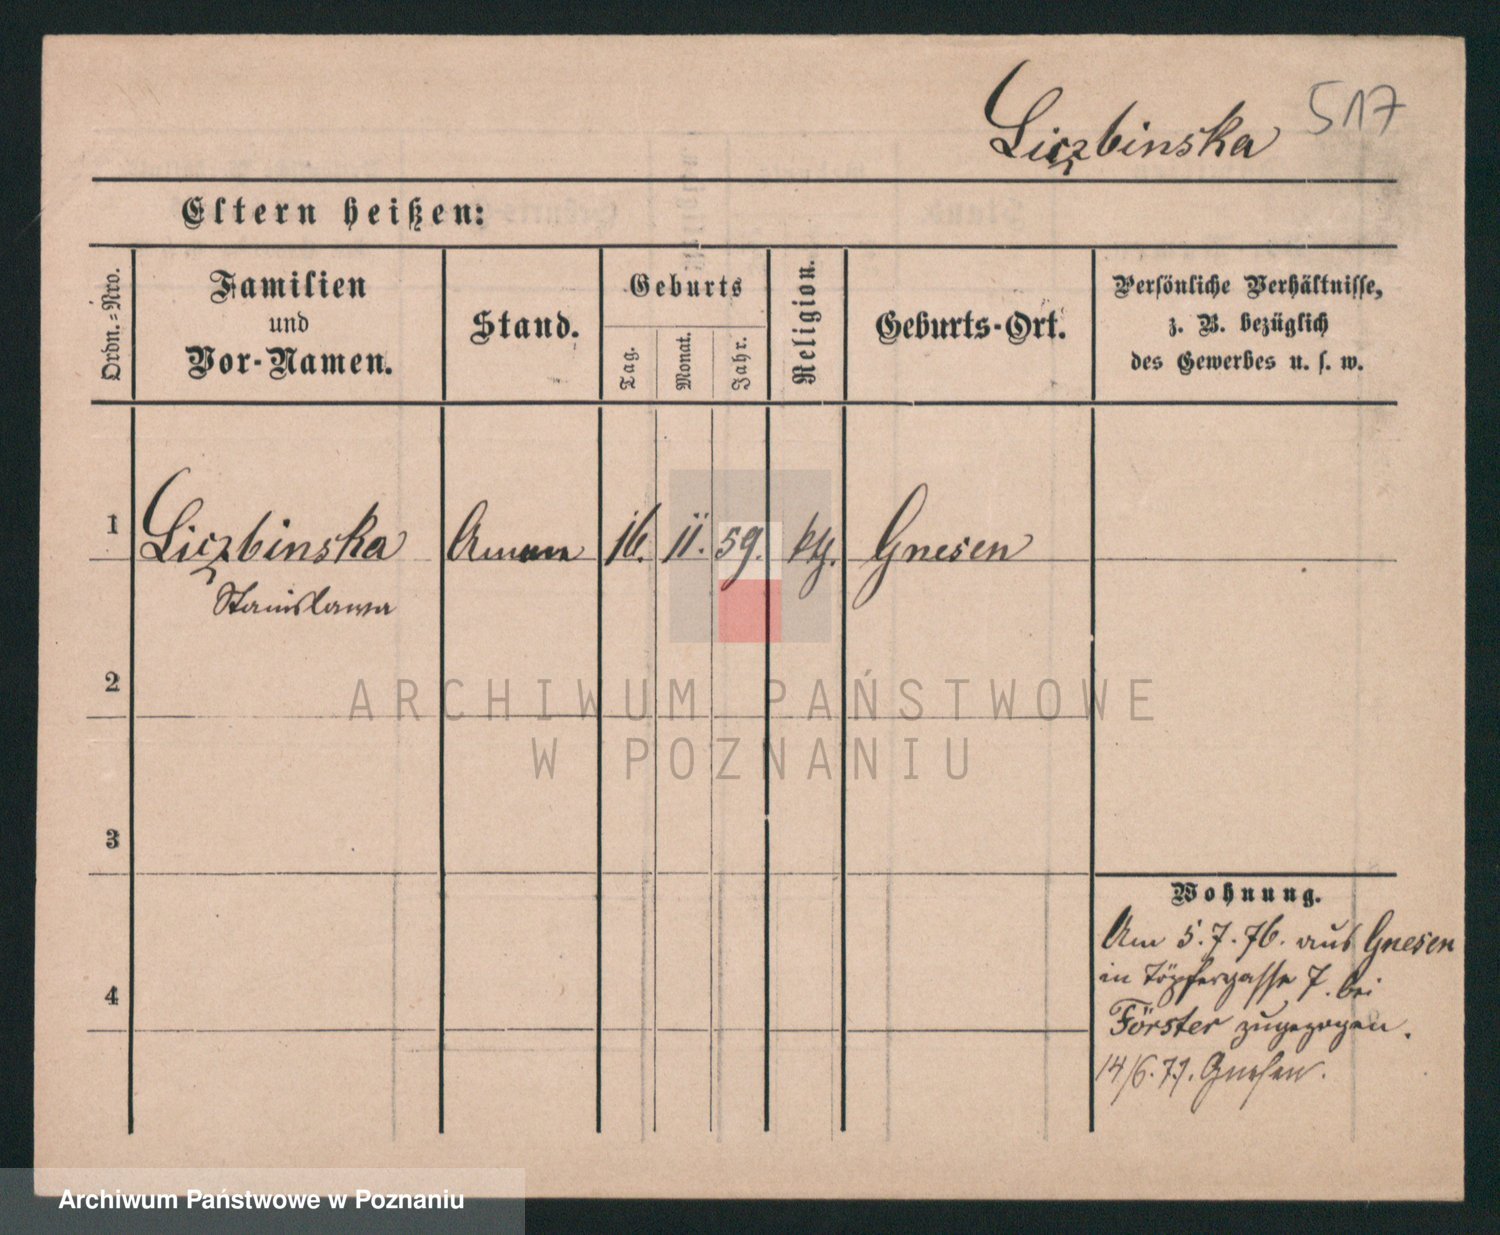 Liczbinska 517
Eltern heißen:
Ordn.=Nro.
Familien
und
Vor-Namen.
Stand.
Geburts
Tag.
Monat.
Jahr.
Religion.
Geburts-Ort.
Persönliche Verhältnisse,
z. B. bezüglich
des Gewerbes u. s. w.
1 Liczbinska Amme 16. 11. 59. kth. Gnesen
Stanislawa
2
ARCHIWUM PAŃSTWOWE
W POZNANIU
3
Wohnung.
Am 5.7.76. aus Gnesen
in Töpfergasse 7. bei
4
Förster zugezogen.
14/6.77. Gnesen.
Archiwum Państwowe w Poznaniu